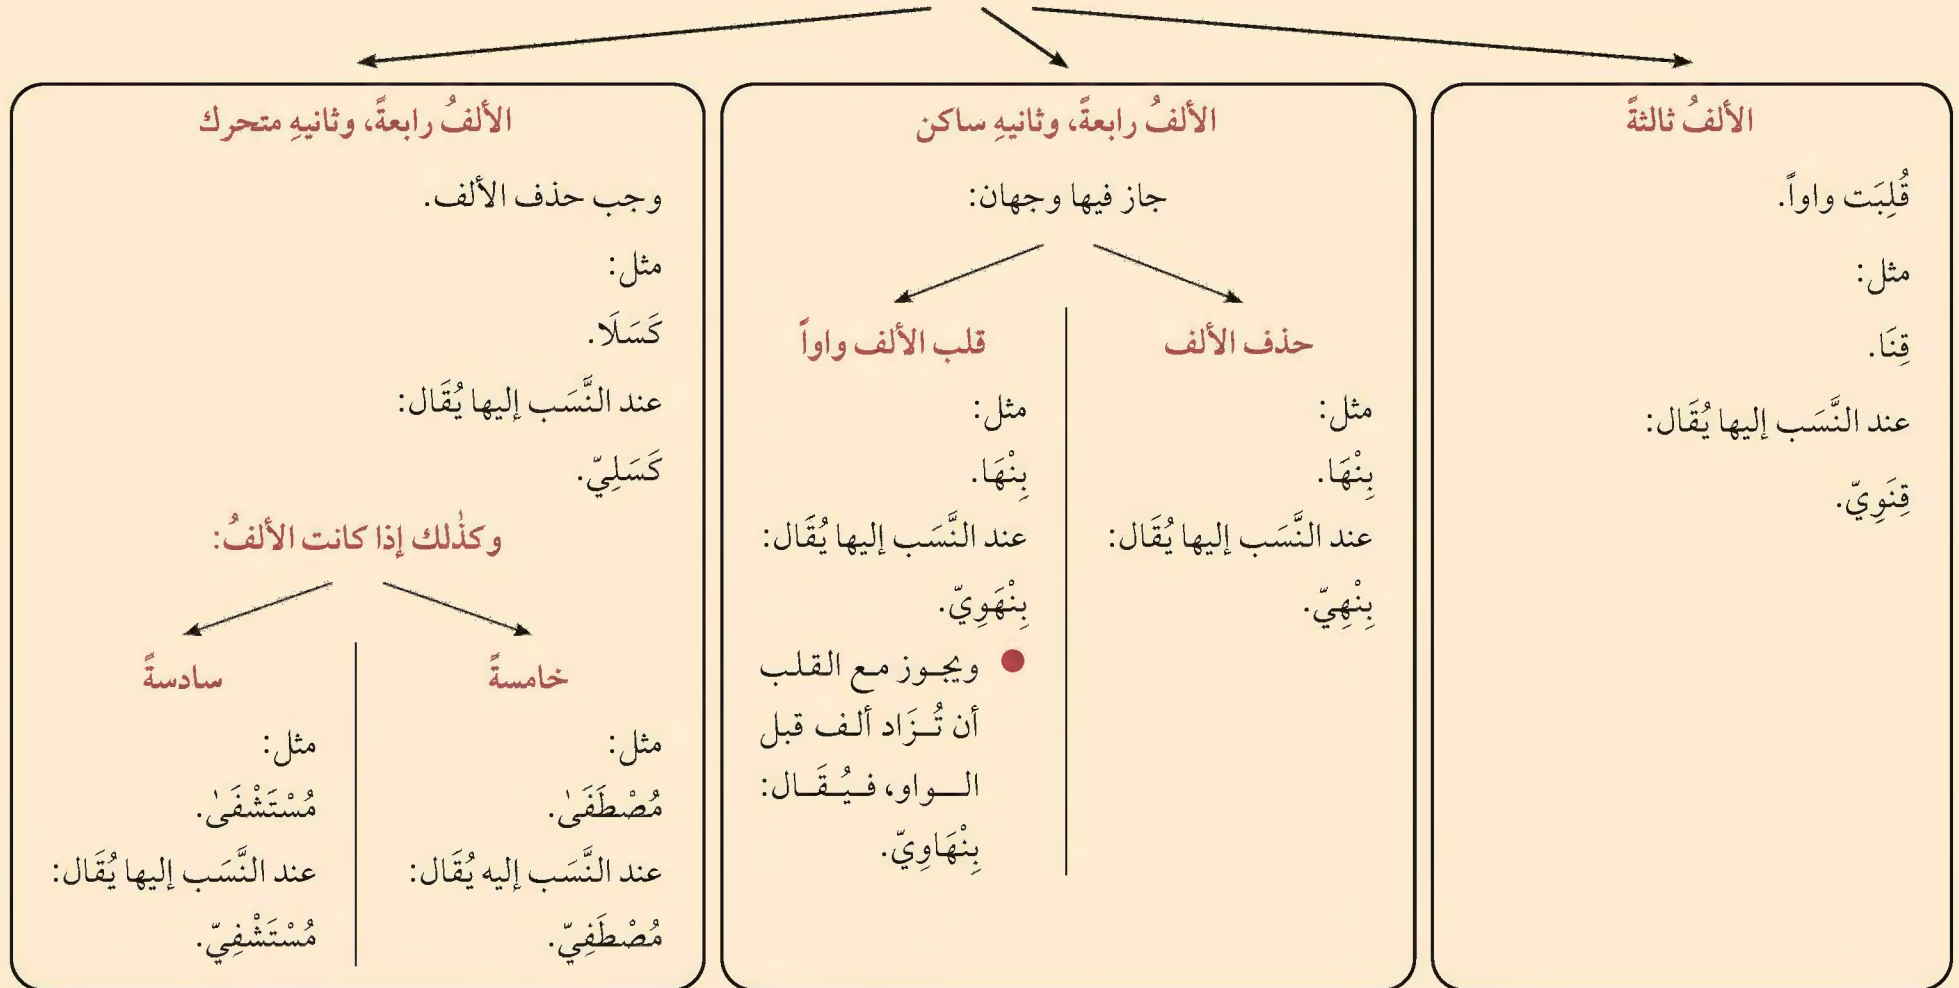 الألفُ ثالثةً
قُلِبَت واواً.
مثل:
قِنَا.
عند النَّسَب إليها يُقَال:
قِنَوِيّ.
الألفُ رابعةً، وثانيهِ ساكن
جاز فيها وجهان:
حذف الألف
مثل:
بِنْهَا.
عند النَّسَب إليها يُقَال:
بِنْهِيّ.
قلب الألف واواً
مثل:
بِنْهَا.
عند النَّسَب إليها يُقَال:
بِنْهَوِيّ.
● ويجـوز مـع القلب
أن تُـزَاد ألـف قبل
الـــواو، فـيُـقَــال:
بِنْهَاوِيّ.
الألفُ رابعةً، وثانيهِ متحرك
وجب حذف الألف.
مثل:
كَسَلَا.
عند النَّسَب إليها يُقَال:
كَسَلِيّ.
وكذٰلك إذا كانت الألفُ:
خامسةً
مثل:
مُصْطَفَىٰ.
عند النَّسَب إليه يُقَال:
مُصْطَفِيّ.
سادسةً
مثل:
مُسْتَشْفَىٰ.
عند النَّسَب إليها يُقَال:
مُسْتَشْفِيّ.